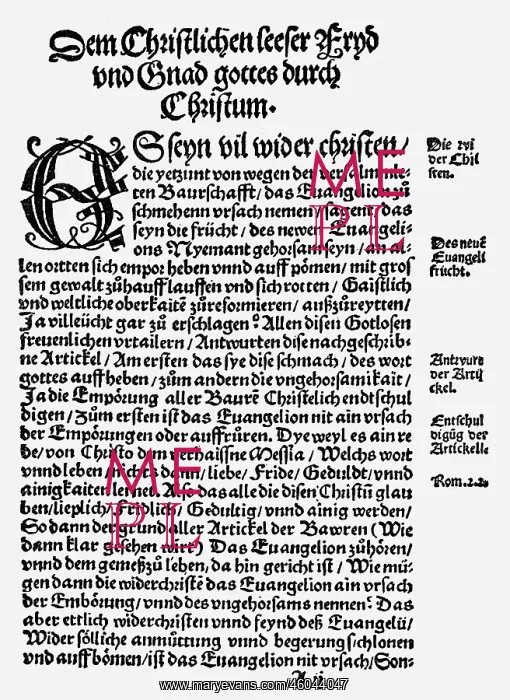 Dem Christlichen leeser Fryd
vnd Gnad gottes durch
Christum.
ES seyn vil wider christen/
die yetzunt von wegen der versamle-
ten Baurschafft/ das Euangelion zů
schmehenn vrsach nemen/ sagent/ das
seyn die frücht/ des newen Euangeli-
ons? Nyemant gehorsam seyn/ an al-
len ortten sich empor heben vnnd auff pömen/ mit gros
sem gewalt zůhauff lauffen vnd sich rotten/ Gaistlich
vnd weltliche oberkaitē zůreformieren/ außzůreytten/
Ja villeücht gar zů erschlagen? Allen disen Gotlosen
freuenlichen vrtailern/ Antwurten dise nachgeschrib-
ne Artickel/ Am ersten das sye dise schmach/ des wort
gottes auffheben/ zům andern die vngehorsamikait/
Ja die Empörung aller Baurē Christelich endtschul
digen/ Zům ersten ist das Euangelion nit ain vrsach
der Empörungen oder auffrůren. Dye weyl es ain re
de/ von Christo dem verhaissne Messia/ Welchs wort
vnnd leben nichts dann/ liebe/ Fride/ Geduldt/ vnnd
ainigkaiten lernet Also das alle die disen Christū glau
ben/ lieplich/ fridlich/ Gedultig/ vnnd ainig werden/
So dann der grund aller Artickel der Bawren (Wie
dann klar gesehen wirt) Das Euangelion zůhören/
vnnd dem gemeßzů lehen/ da hin gericht ist/ Wie mü-
gen dann die widerchristē das Euangelion ain vrsach
der Embörung/ vnnd des vngehorsams nennen? Das
aber ettlich widerchristen vnnd feynd deß Euangelii/
Wider sölliche anmůttung vnnd begerung sich lonen
vnd auffbömen/ ist das Euangelion nit vrsach/ Son-
A ij
Die xvi
der Chri
sten.
Des neuē
Euangeli
frücht.
Antwurt
der Arti
ckel.
Entschul
digūg der
Artickelle
Rom.
MEPL
MEPL
www.maryevans.com/46044047